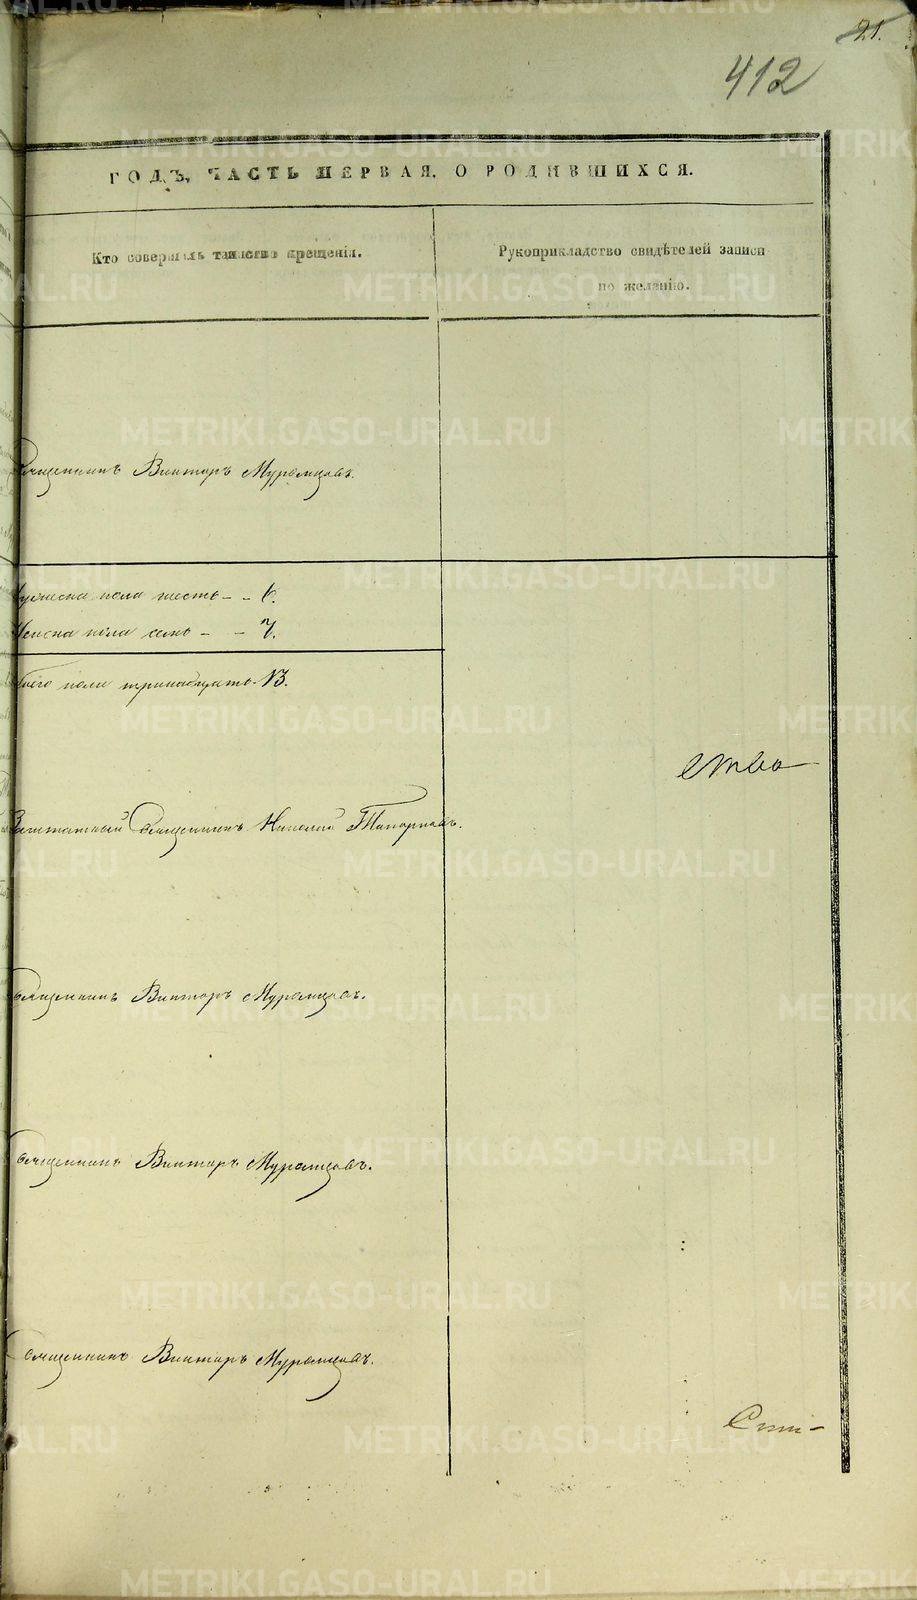 21.
412
ГОДЪ, ЧАСТЬ ПЕРВАЯ, О РОДИВШИХСЯ.
Кто совершалъ таинство крещенія.
Рукоприкладство свидѣтелей записи
по желанію.
Священникъ Викторъ Муромцовъ.
Мужеска пола шесть - - 6.
Женска пола семь - - 7.
Обоего пола тринадцать. 13.
ства
Заштатный Священникъ Николай Топорковъ.
Священникъ Викторъ Муромцовъ.
Священникъ Викторъ Муромцовъ.
Священникъ Викторъ Муромцовъ.
METRIKI.GASO-URAL.RU